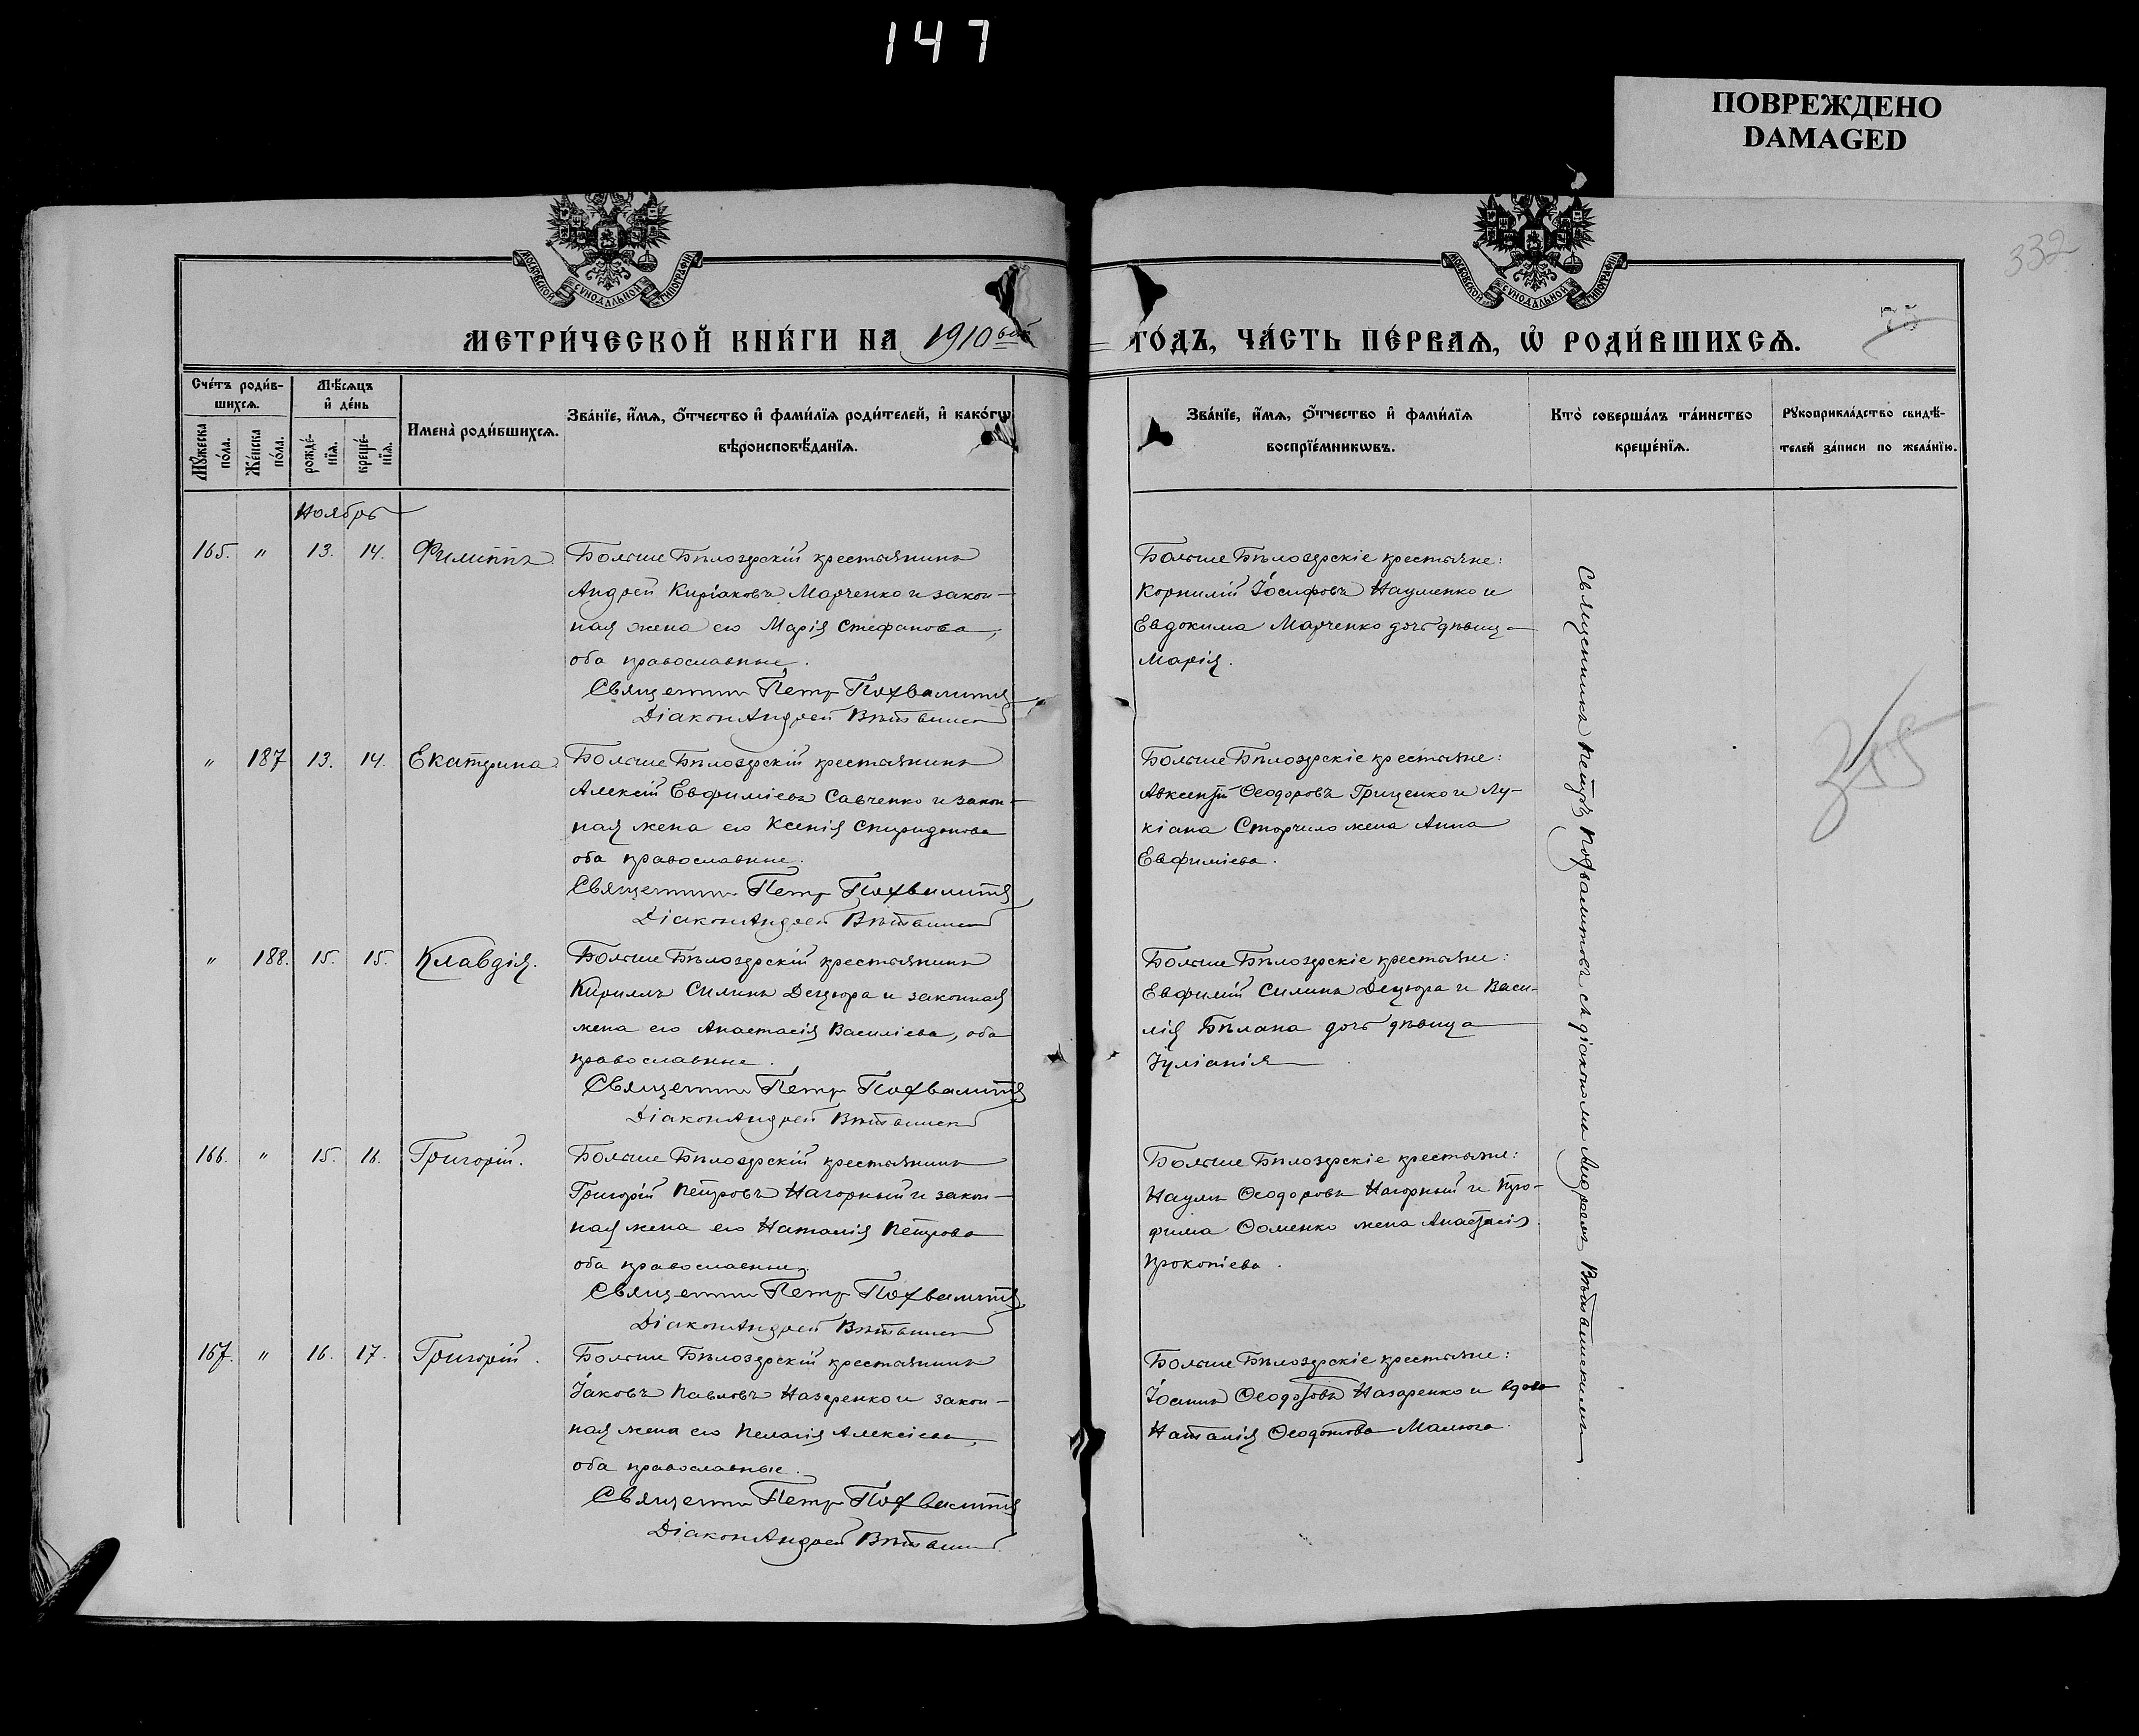 147
ПОВРЕЖДЕНО
DAMAGED
332
МОСКОВСКОЙ СѴНОДАЛЬНОЙ ТИПОГРАФІИ
МОСКОВСКОЙ СѴНОДАЛЬНОЙ ТИПОГРАФІИ
75
МЕТРИ́ЧЕСКОЙ КНИ́ГИ НА 1910 ый
ГО́ДЪ, ЧА́СТЬ ПЕ́РВАѦ, Ѡ҆ РОДИ́ВШИХСѦ.
Сче́тъ роди́в-
шихсѧ.
Мꙋ́жеска по́ла.
Же́нска по́ла.
Мѣ́сѧцъ
и҆ де́нь
рожде́-
нїѧ.
креще́-
нїѧ.
Имена̀ роди́вшихсѧ.
Зва́нїе, и҆́мѧ, ѻ҆́тчество и҆ фами́лїѧ роди́телей, и҆ како́гѡ
вѣроисповѣ́данїѧ.
Зва́нїе, и҆́мѧ, ѻ҆́тчество и҆ фами́лїѧ
воспрїе́мникѡвъ.
Кто̀ соверша́лъ та́инство
креще́нїѧ.
Рꙋкоприкла́дство свидѣ́-
телей за́писи по жела́нїю.
Ноябрь
165. " 13. 14. Филиппъ.
Больше Бѣлозерскій крестьянинъ
Андрей Киріаковъ Марченко и закон-
ная жена его Марія Стефанова,
оба православные.
Священникъ Петръ Похвалитовъ
Діаконъ Андрей
Больше Бѣлозерскіе крестьяне:
Корнилій Іосифовъ Науменко и
Евдокима Марченко дочь дѣвица
Марія.
" 187 13. 14. Екатерина.
Больше Бѣлозерскій крестьянинъ
Алексій Евфиміевъ Савченко и закон-
ная жена его Ксенія Спиридонова
оба православные.
Священникъ Петръ Похвалитовъ
Діаконъ Андрей
Больше Бѣлозерскіе крестьяне:
Авксентій Ѳеодоровъ Гриценко и Лу-
кіана Сторчило жена Анна
Евфиміева.
" 188. 15. 15. Клавдія.
Больше Бѣлозерскій крестьянинъ
Кириллъ Силинъ Децюра и законная
жена его Анастасія Василіева, оба
православные.
Священникъ Петръ Похвалитовъ
Діаконъ Андрей
Больше Бѣлозерскіе крестьяне:
Евфимій Силинъ Децюра и Васи-
лія Бѣлана дочь дѣвица
Іуліанія
166. " 15. 16. Григорій.
Больше Бѣлозерскій крестьянинъ
Григорій Петровъ Нагорный и закон-
ная жена его Наталія Петрова
оба православные.
Священникъ Петръ Похвалитовъ
Діаконъ Андрей
Больше Бѣлозерскіе крестьяне:
Наумъ Ѳеодоровъ Нагорный и Тро-
фима Ѳоменко жена Анастасія
Прокопіева.
167. " 16. 17. Григорій.
Больше Бѣлозерскій крестьянинъ
Іаковъ Павловъ Назаренко и закон-
ная жена его Пелагія Алексіева,
оба православные.
Священникъ Петръ Похвалитовъ
Діаконъ Андрей
Больше Бѣлозерскіе крестьяне:
Ѳеодотовъ Назаренко и вдова
Наталія Ѳеодотова Малюга.
Священникъ Петръ Похвалитовъ съ діакономъ Андреемъ